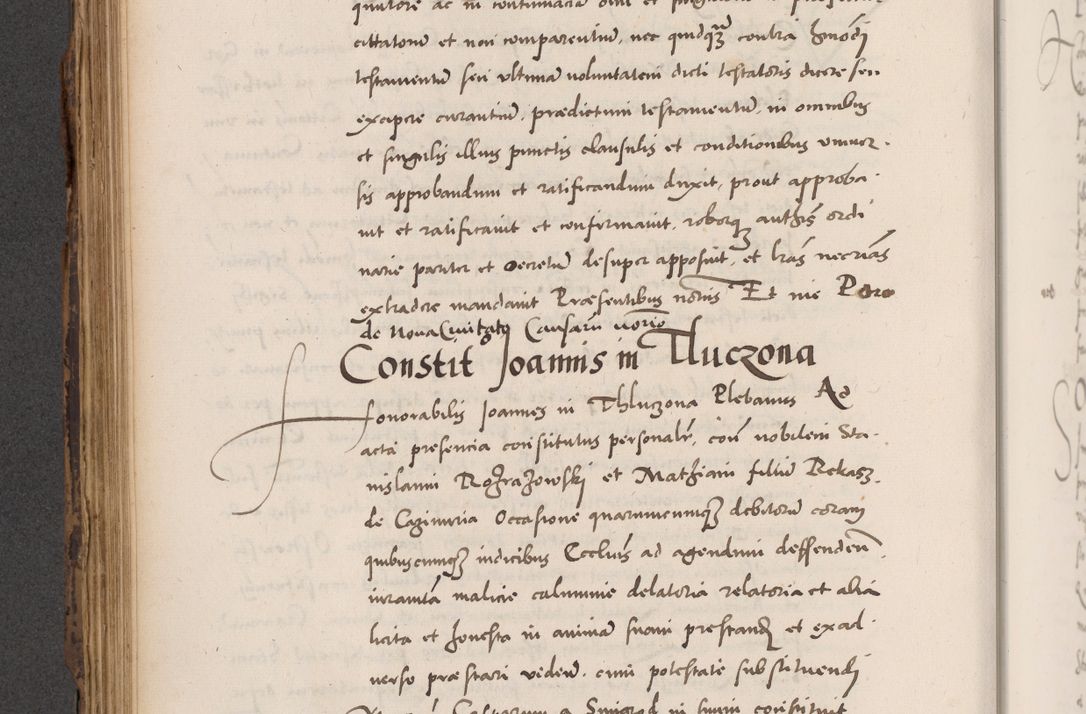 cittatorum et non comparentium, nec quidquam contra hmodi
testamentum seu ultimam voluntatem dicti testatoris dicere seu
excipere curantium, prædictum testamentum, in omnibus
et singulis illius punctis clausulis et conditionibus univer-
sis approbandum et ratificandum duxit, prout approba-
vit et ratificavit et confirmavit, roborque authis ordi
narie pariter et decretum desuper apposuit, et lras necrias
extradere mandavit Præsentibus notariis Et me Petro
de Nova Civitate Causarum norio
Constit Joannis in Tluczona
Honorabilis Joannes in Thluczona Plebanus Ad
acta presencia constitutus personalr, con nobilem Sta-
nislaum Rozrazowski et Mathiam filium Rekasz
de Cazimiria Occasione quarumcumque debitorum coram
quibuscumque iudicibus Ecclius ad agendum deffenden
iuramta malicie calumnie delatoria relatoria et alia
licita et honesta in animam suam prestand et exad-
verso præstari videm. cum potestate substituendi
Casparum a Smigrod in suum constituit